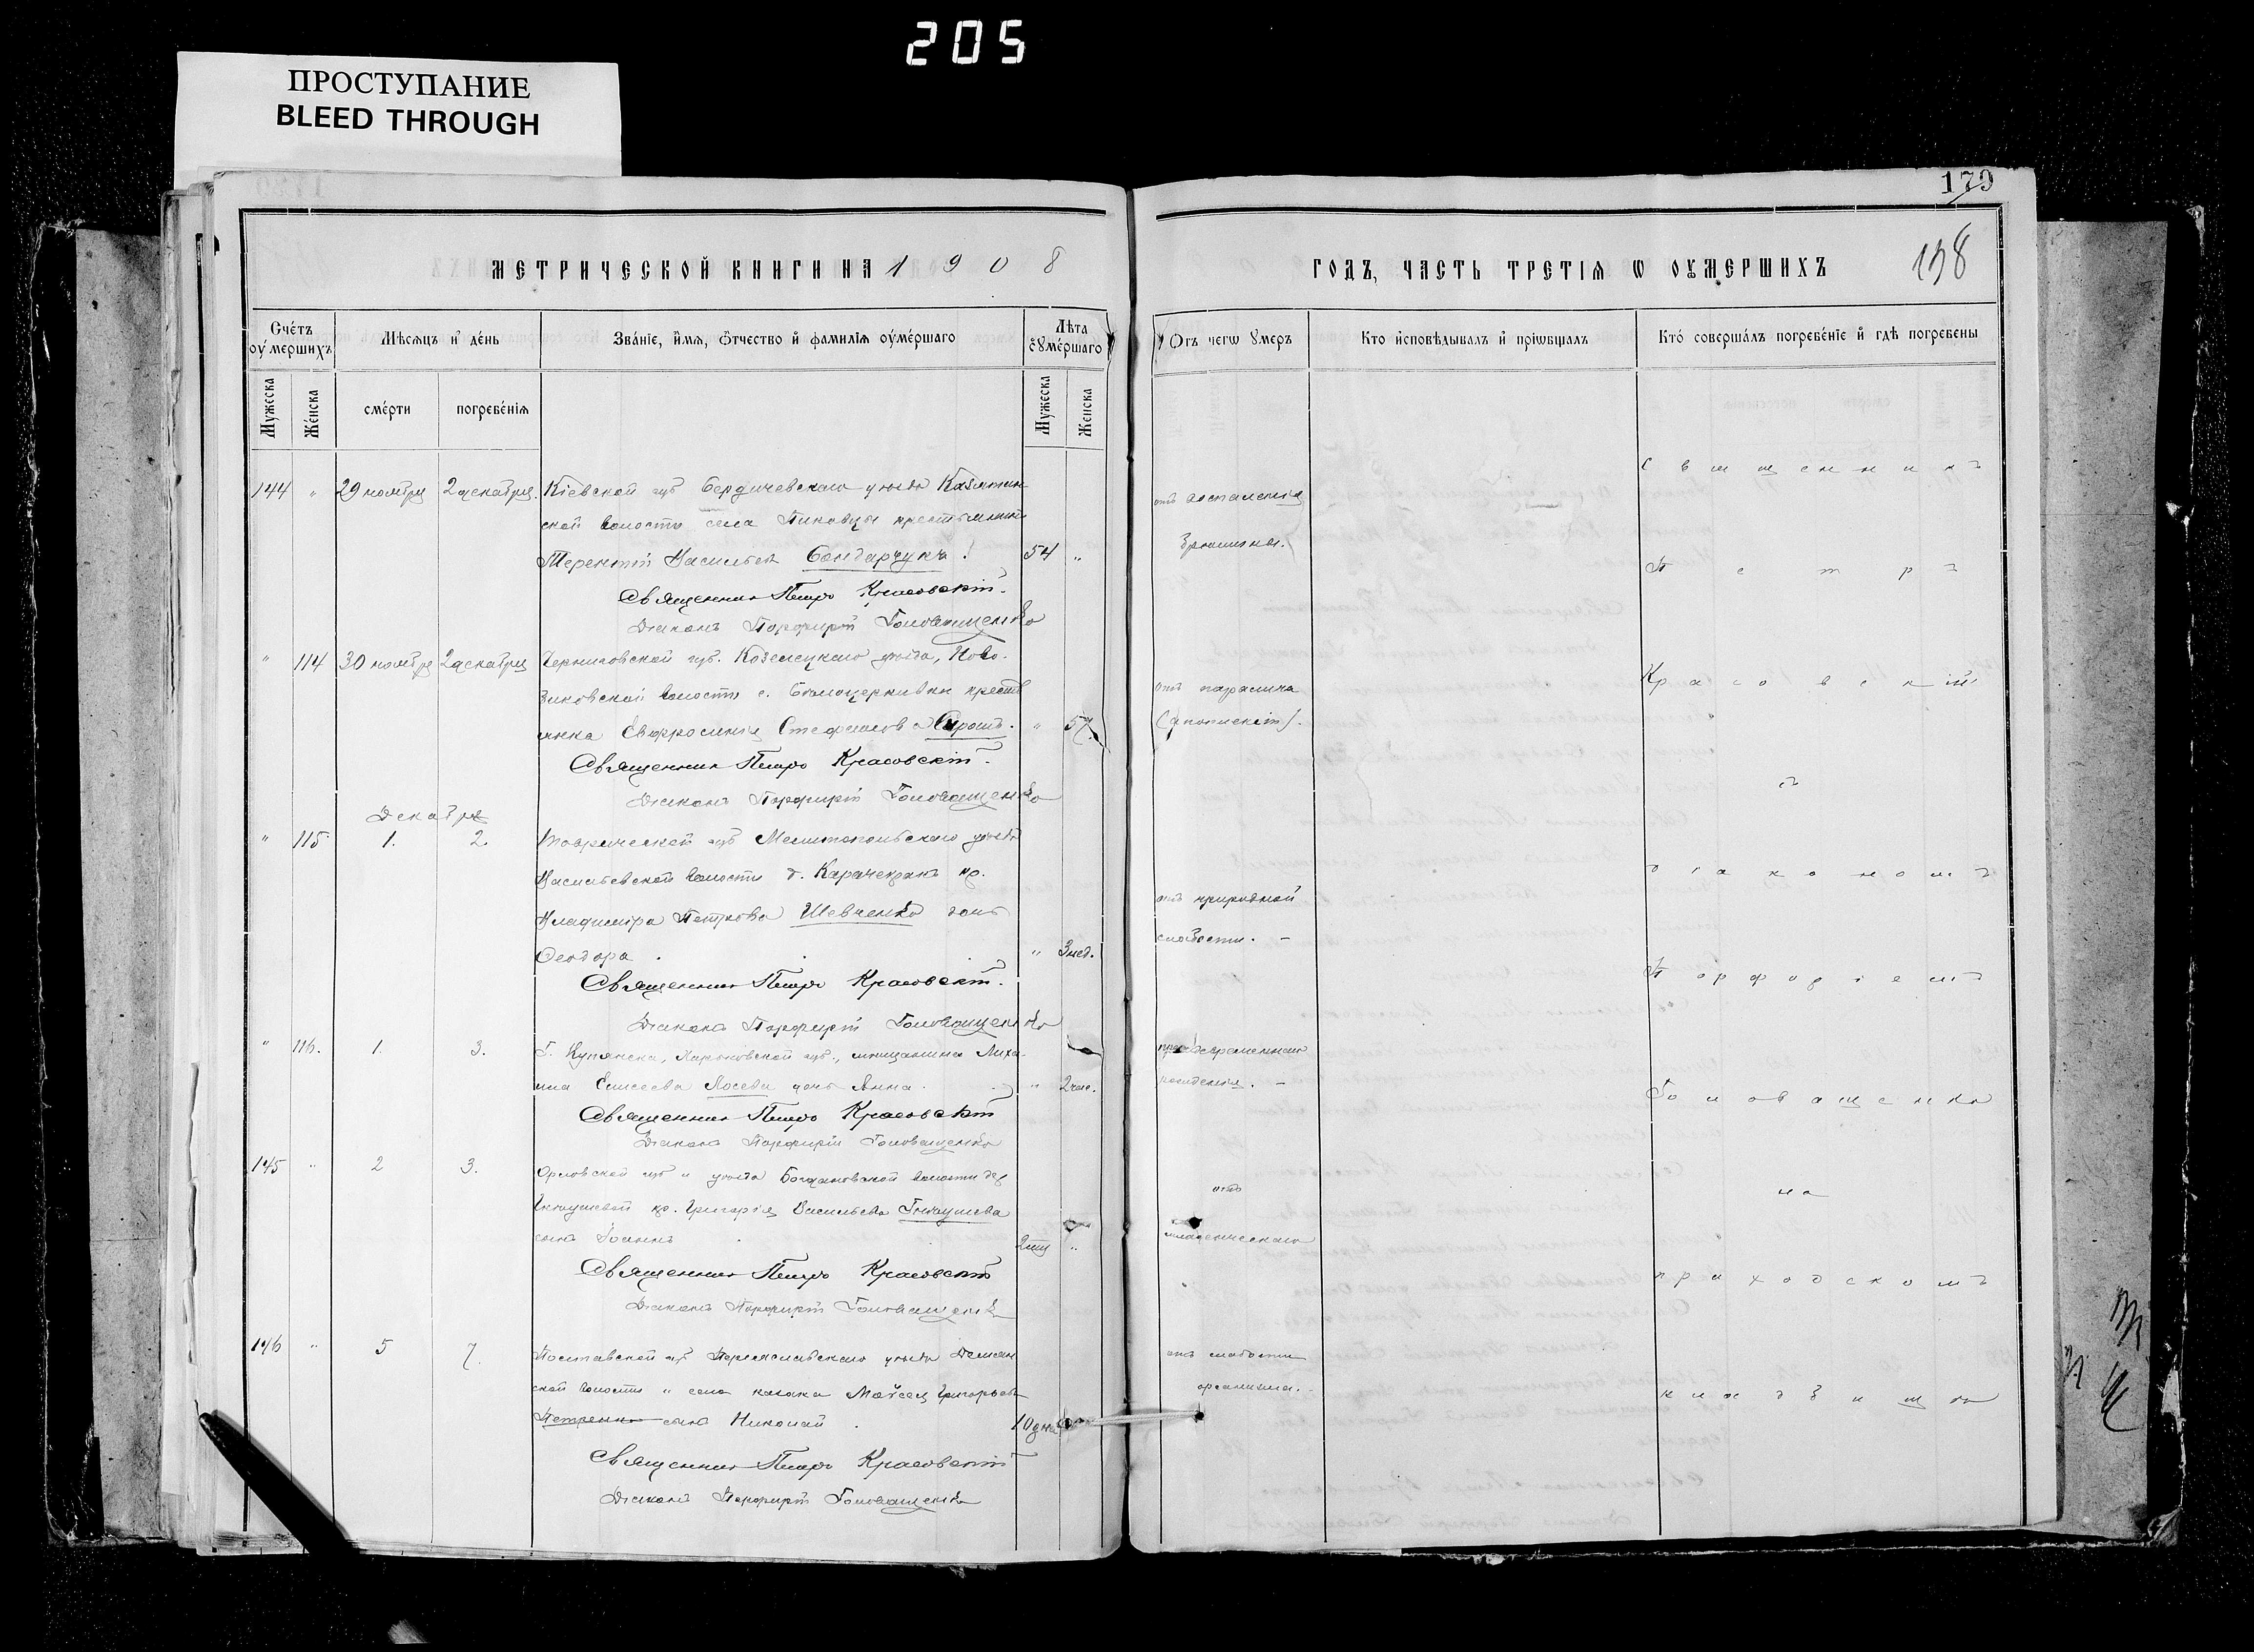 205
ПРОСТУПАНИЕ
BLEED THROUGH
179
138
МЕТРИЧЕСКОЙ КНИГИ НА 1908
ГОДЪ, ЧАСТЬ ТРЕТІЯ Ѡ ОУМЕРШИХЪ
Счетъ оумершихъ
Мѣсяцъ и день
Званіе, имя, отчество и фамилія оумершаго
Лѣта оумершаго
Отъ чегѡ умеръ
Кто исповѣдывалъ и пріѡбщалъ
Кто совершалъ погребеніе и гдѣ погребены
Мужеска
Женска
смерти
погребенія
Мужеска
Женска
144 " 29 ноября 2 декабря. Кіевской губ Бердичевскаго уѣзда Казятин-
ской волости села Пиковцы крестьянинъ
Терентій Васильевъ Бондарчукъ. 54 "
отъ воспаленія
брюшины.
Священникъ Петръ Красовскій.
Діаконъ Порфирій Головащенко
" 114 30 ноября 2 декабря Черниговской губ. Козелецкаго уѣзда, Ново-
волости с. крестья-
янка Евфросинія Стефанова " 57.
отъ паралича
Священникъ Петръ Красовскій.
Діаконъ Порфирій Головащенко
Декабрь
" 115 1. 2. Таврической губ Мелитопольскаго уѣзда
Васильевской волости д. Карачекракъ кр.
Владиміра Петрова Шевченко дочь
Ѳеодора " 3 нед.
отъ природной
слабости. -
Священникъ Петръ Красовскій.
Діаконъ Порфирій Головащенко
" 116. 1. 3. Г. Купянска, Харьковской губ., мѣщанина Миха-
ила Елисеева Лосева дочь Анна. " 2 час.
рожденія. -
Священникъ Петръ Красовскій
Діаконъ Порфирій Головащенко
145 " 2 3. Орловской губ и уѣзда Богдановской волости дер
кр. Григорія Васильева
сынъ Іоаннъ "
отъ
младенческаго
Священникъ Петръ Красовскій
Діаконъ Порфирій Головащенко
146 " 5 7. Полтавской губ Переяславскаго уѣзда Демян-
ской волости и села казака Моѵсея Григорьева
Петренко сынъ Николай. 10 дней
отъ слабости
организма.
Священникъ Петръ Красовскій
Діаконъ Порфирій Головащенко
Священникъ
Петръ
Красовскій
съ
діакономъ
Порфиріемъ
Головащенко
на
приходскомъ
кладбищѣ